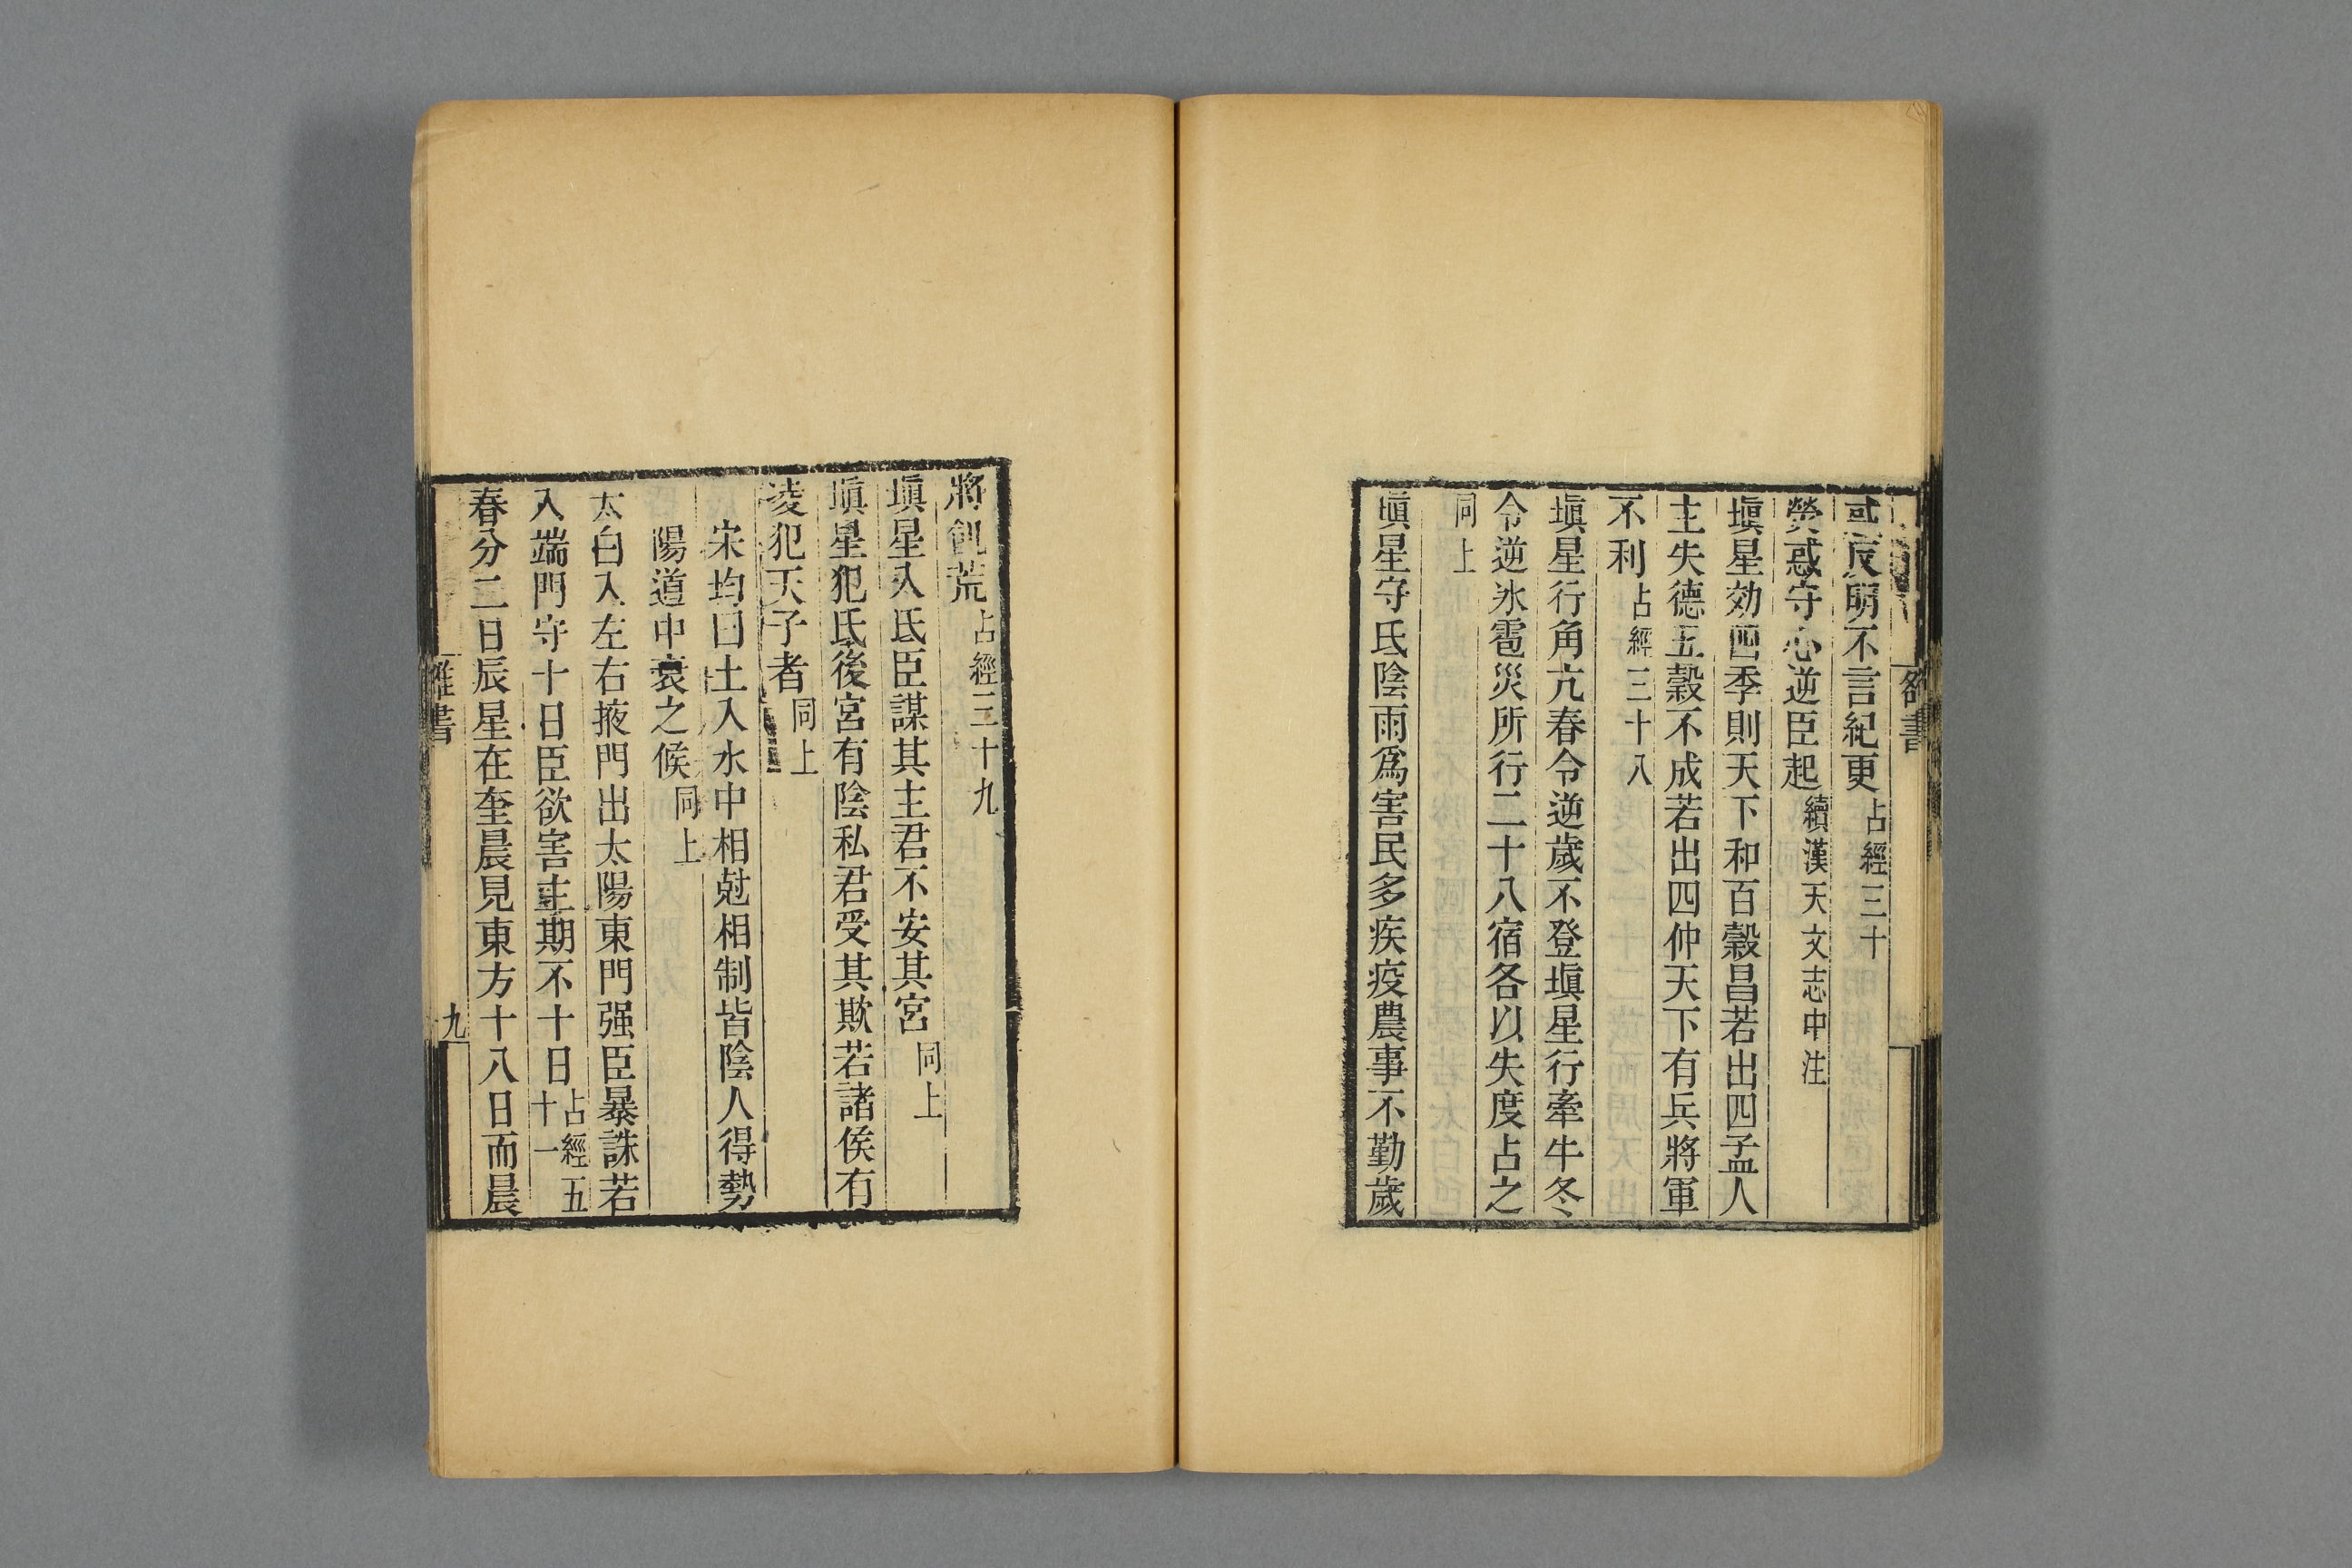 或反明不言紀更占經三十
熒惑守心逆臣起續漢天文志中注
塡星効四季則天下和百穀昌若出四孟人
主失德五穀不成若出四仲天下有兵將軍
不利占經三十八
塡星行角亢春令逆歲不登塡星行牽牛冬
令逆氷雹災所行二十八宿各以失度占之
同上
塡星守氐陰雨爲害民多疾疫農事不勤歲
將飢荒占經三十九
塡星入氐臣謀其主君不安其宮同上
塡星犯氐後宮有陰私君受其欺若諸侯有
凌犯天子者同上
宋均曰土入水中相尅相制皆陰人得勢
陽道中衰之候同上
太白入左右掖門出太陽東門强臣暴誅若
入端門守十日臣欲害主期不十日占經五十一
春分二日辰星在奎晨見東方十八日而晨
雒書
九